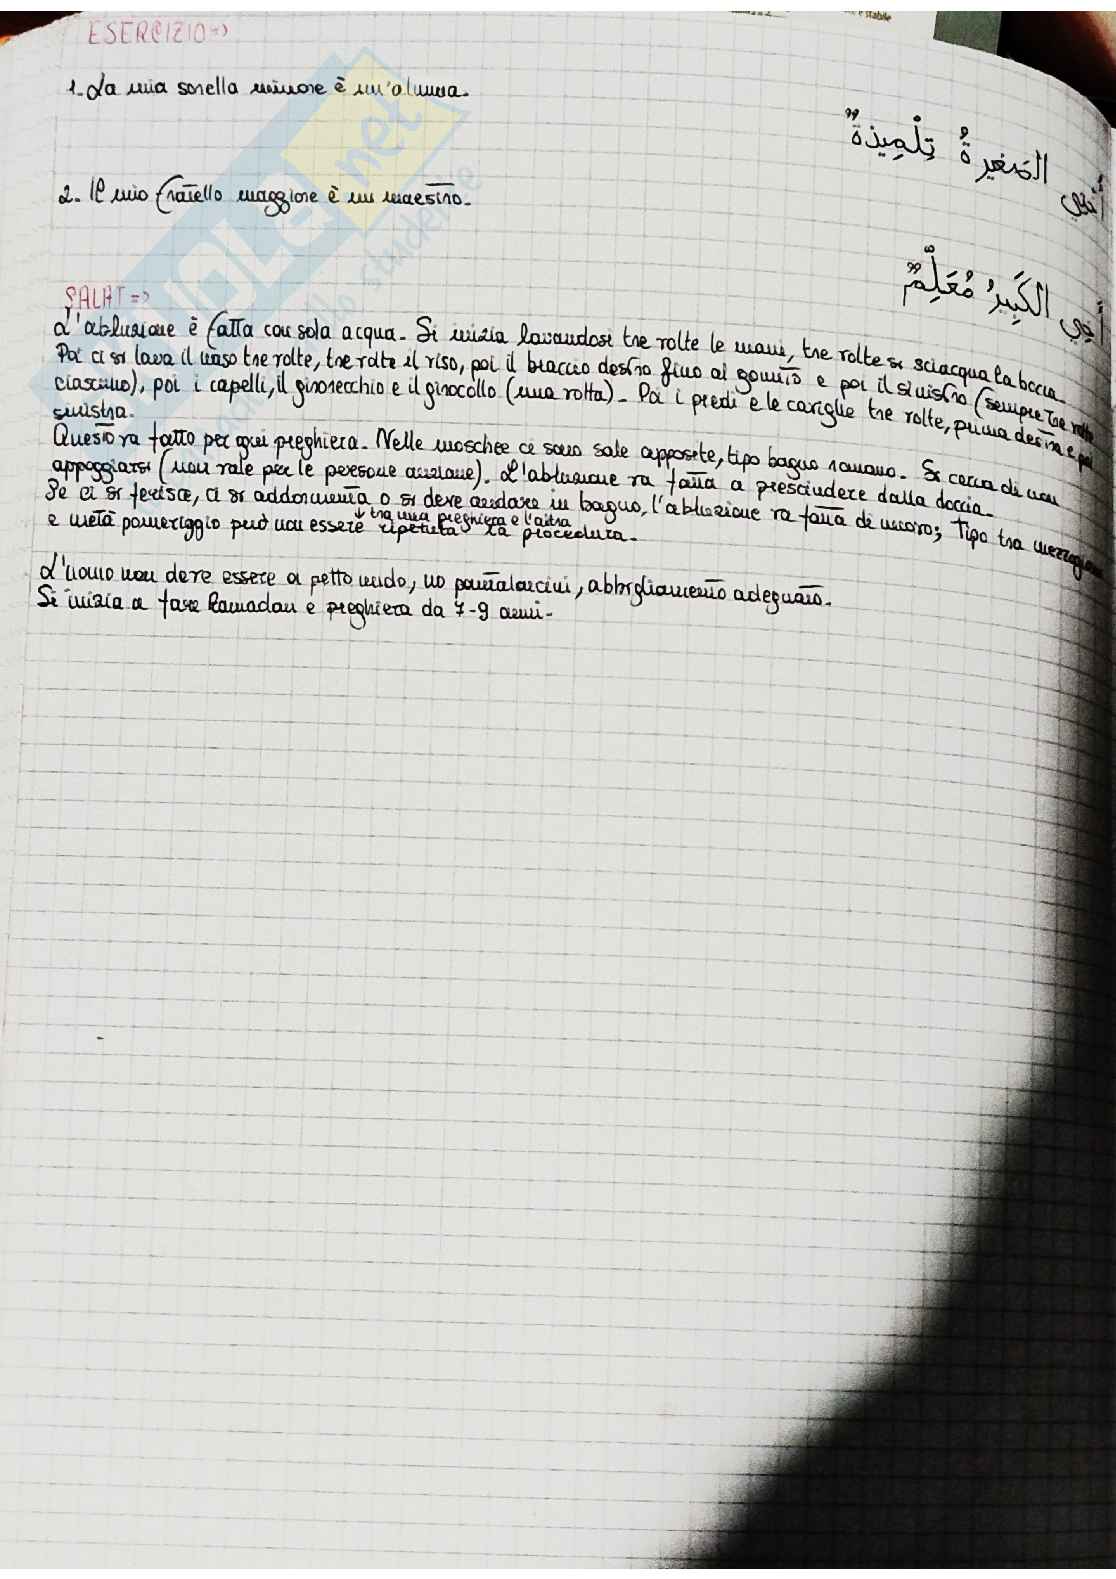 ESERCIZIO=>
1. La mia sorella minore è un'alunna.
أختي الصَغيرةُ تِلْمِيذةٌ
2. Il mio fratello maggiore è un maestro.
أخي الكَبِيرُ مُعَلِّمٌ
SALAT=>
L'abluzione è fatta con sola acqua. Si inizia lavandosi tre volte le mani, tre volte si sciacqua la bocca.
Poi ci si lava il naso tre volte, tre volte il viso, poi il braccio destro fino al gomito e poi il sinistro (sempre tre volte
ciascuno), poi i capelli, il ginorecchio e il ginocollo (una volta). Poi i piedi e le caviglie tre volte, prima destra e poi
sinistra.
Questo va fatto per ogni preghiera. Nelle moschee ci sono sale apposite, tipo bagno romano. Si cerca di non
appoggiarsi (non vale per le persone anziane). L'abluzione va fatta a prescindere dalla doccia.
Se ci si ferisce, ci si addormenta o si deve andare in bagno, l'abluzione va fatta di nuovo; Tipo tra mezzogiorno
↓ tra una preghiera e l'altra
e metà pomeriggio può non essere ripetuta la procedura.
L'uomo non deve essere a petto nudo, no pantaloncini, abbigliamento adeguato.
Si inizia a fare Ramadan e preghiera da 7-9 anni.